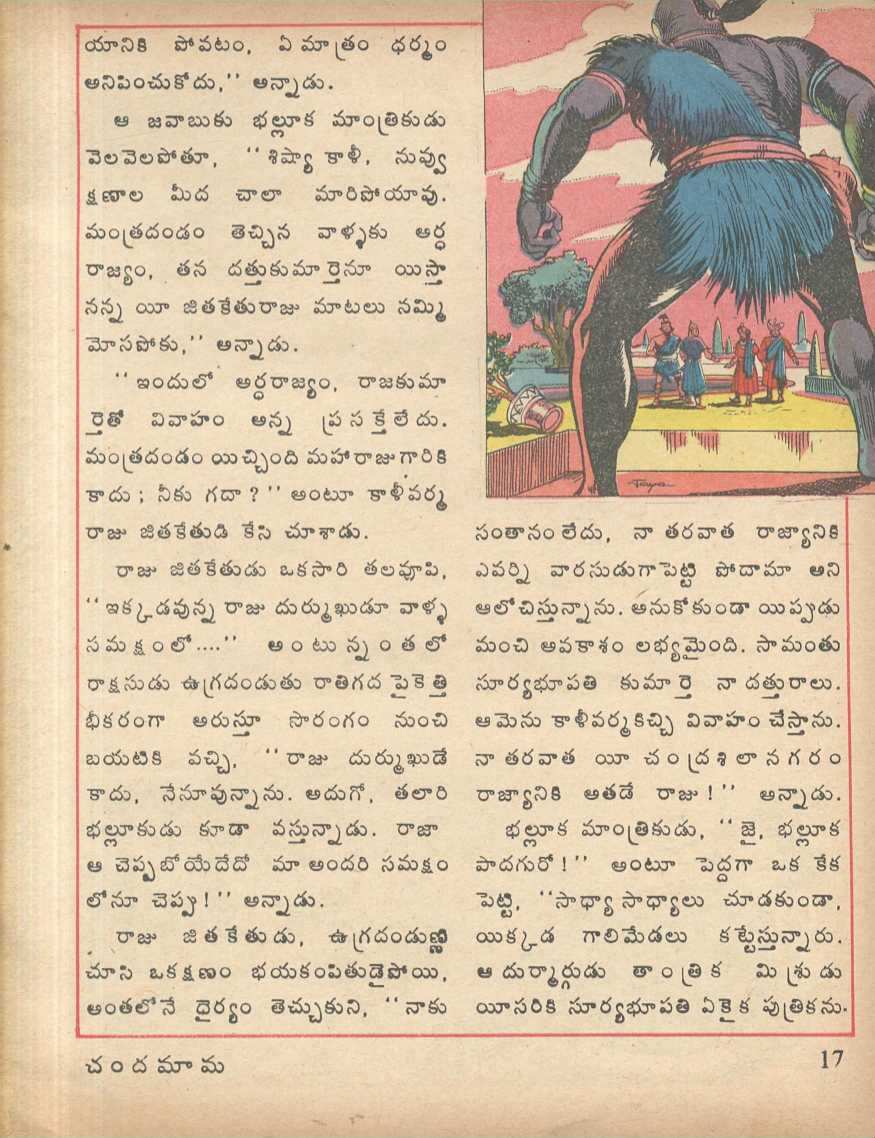 యానికి పోవటం, ఏ మాత్రం ధర్మం
అనిపించుకోదు,'' అన్నాడు.
ఆ జవాబుకు భల్లూక మాంత్రికుడు
వెలవెలపోతూ, ''శిష్యా కాళీ, నువ్వు
క్షణాల మీద చాలా మారిపోయావు.
మంత్రదండం తెచ్చిన వాళ్ళకు అర్ధ
రాజ్యం, తన దత్తుకుమార్తెనూ యిస్తా
నన్న యీ జితకేతురాజు మాటలు నమ్మి
మోసపోకు,'' అన్నాడు.
''ఇందులో అర్ధరాజ్యం, రాజకుమా
ర్తెతో వివాహం అన్న ప్రసక్తేలేదు.
మంత్రదండం యిచ్చింది మహారాజుగారికి
కాదు; నీకు గదా?'' అంటూ కాళీవర్మ
రాజు జితకేతుడి కేసి చూశాడు.
రాజు జితకేతుడు ఒకసారి తలవూపి,
''ఇక్కడవున్న రాజు దుర్ముఖుడూ వాళ్ళ
సమక్షంలో....'' అంటున్నంతలో
రాక్షసుడు ఉగ్రదండుతు రాతిగద పైకెత్తి
భీకరంగా అరుస్తూ సొరంగం నుంచి
బయటికి వచ్చి, ''రాజు దుర్ముఖుడే
కాదు, నేనూవున్నాను. అదుగో, తలారి
భల్లూకుడు కూడా వస్తున్నాడు. రాజా
ఆ చెప్పబోయేదేదో మా అందరి సమక్షం
లోనూ చెప్పు!'' అన్నాడు.
రాజు జితకేతుడు, ఉగ్రదండుణ్ణి
చూసి ఒకక్షణం భయకంపితుడైపోయి,
అంతలోనే ధైర్యం తెచ్చుకుని, ''నాకు
సంతానంలేదు, నా తరవాత రాజ్యానికి
ఎవర్ని వారసుడుగాపెట్టి పోదామా అని
ఆలోచిస్తున్నాను. అనుకోకుండా యిప్పుడు
మంచి అవకాశం లభ్యమైంది. సామంతు
సూర్యభూపతి కుమార్తె నా దత్తురాలు.
ఆమెను కాళీవర్మకిచ్చి వివాహం చేస్తాను.
నా తరవాత యీ చంద్రశిలానగరం
రాజ్యానికి అతడే రాజు!'' అన్నాడు.
భల్లూక మాంత్రికుడు, ''జై, భల్లూక
పాదగురో!'' అంటూ పెద్దగా ఒక కేక
పెట్టి, ''సాధ్యాసాధ్యాలు చూడకుండా,
యిక్కడ గాలిమేడలు కట్టేస్తున్నారు.
ఆ దుర్మార్గుడు తాంత్రిక మిశ్రుడు
యీసరికి సూర్యభూపతి ఏకైక పుత్రికను
చందమామ
17